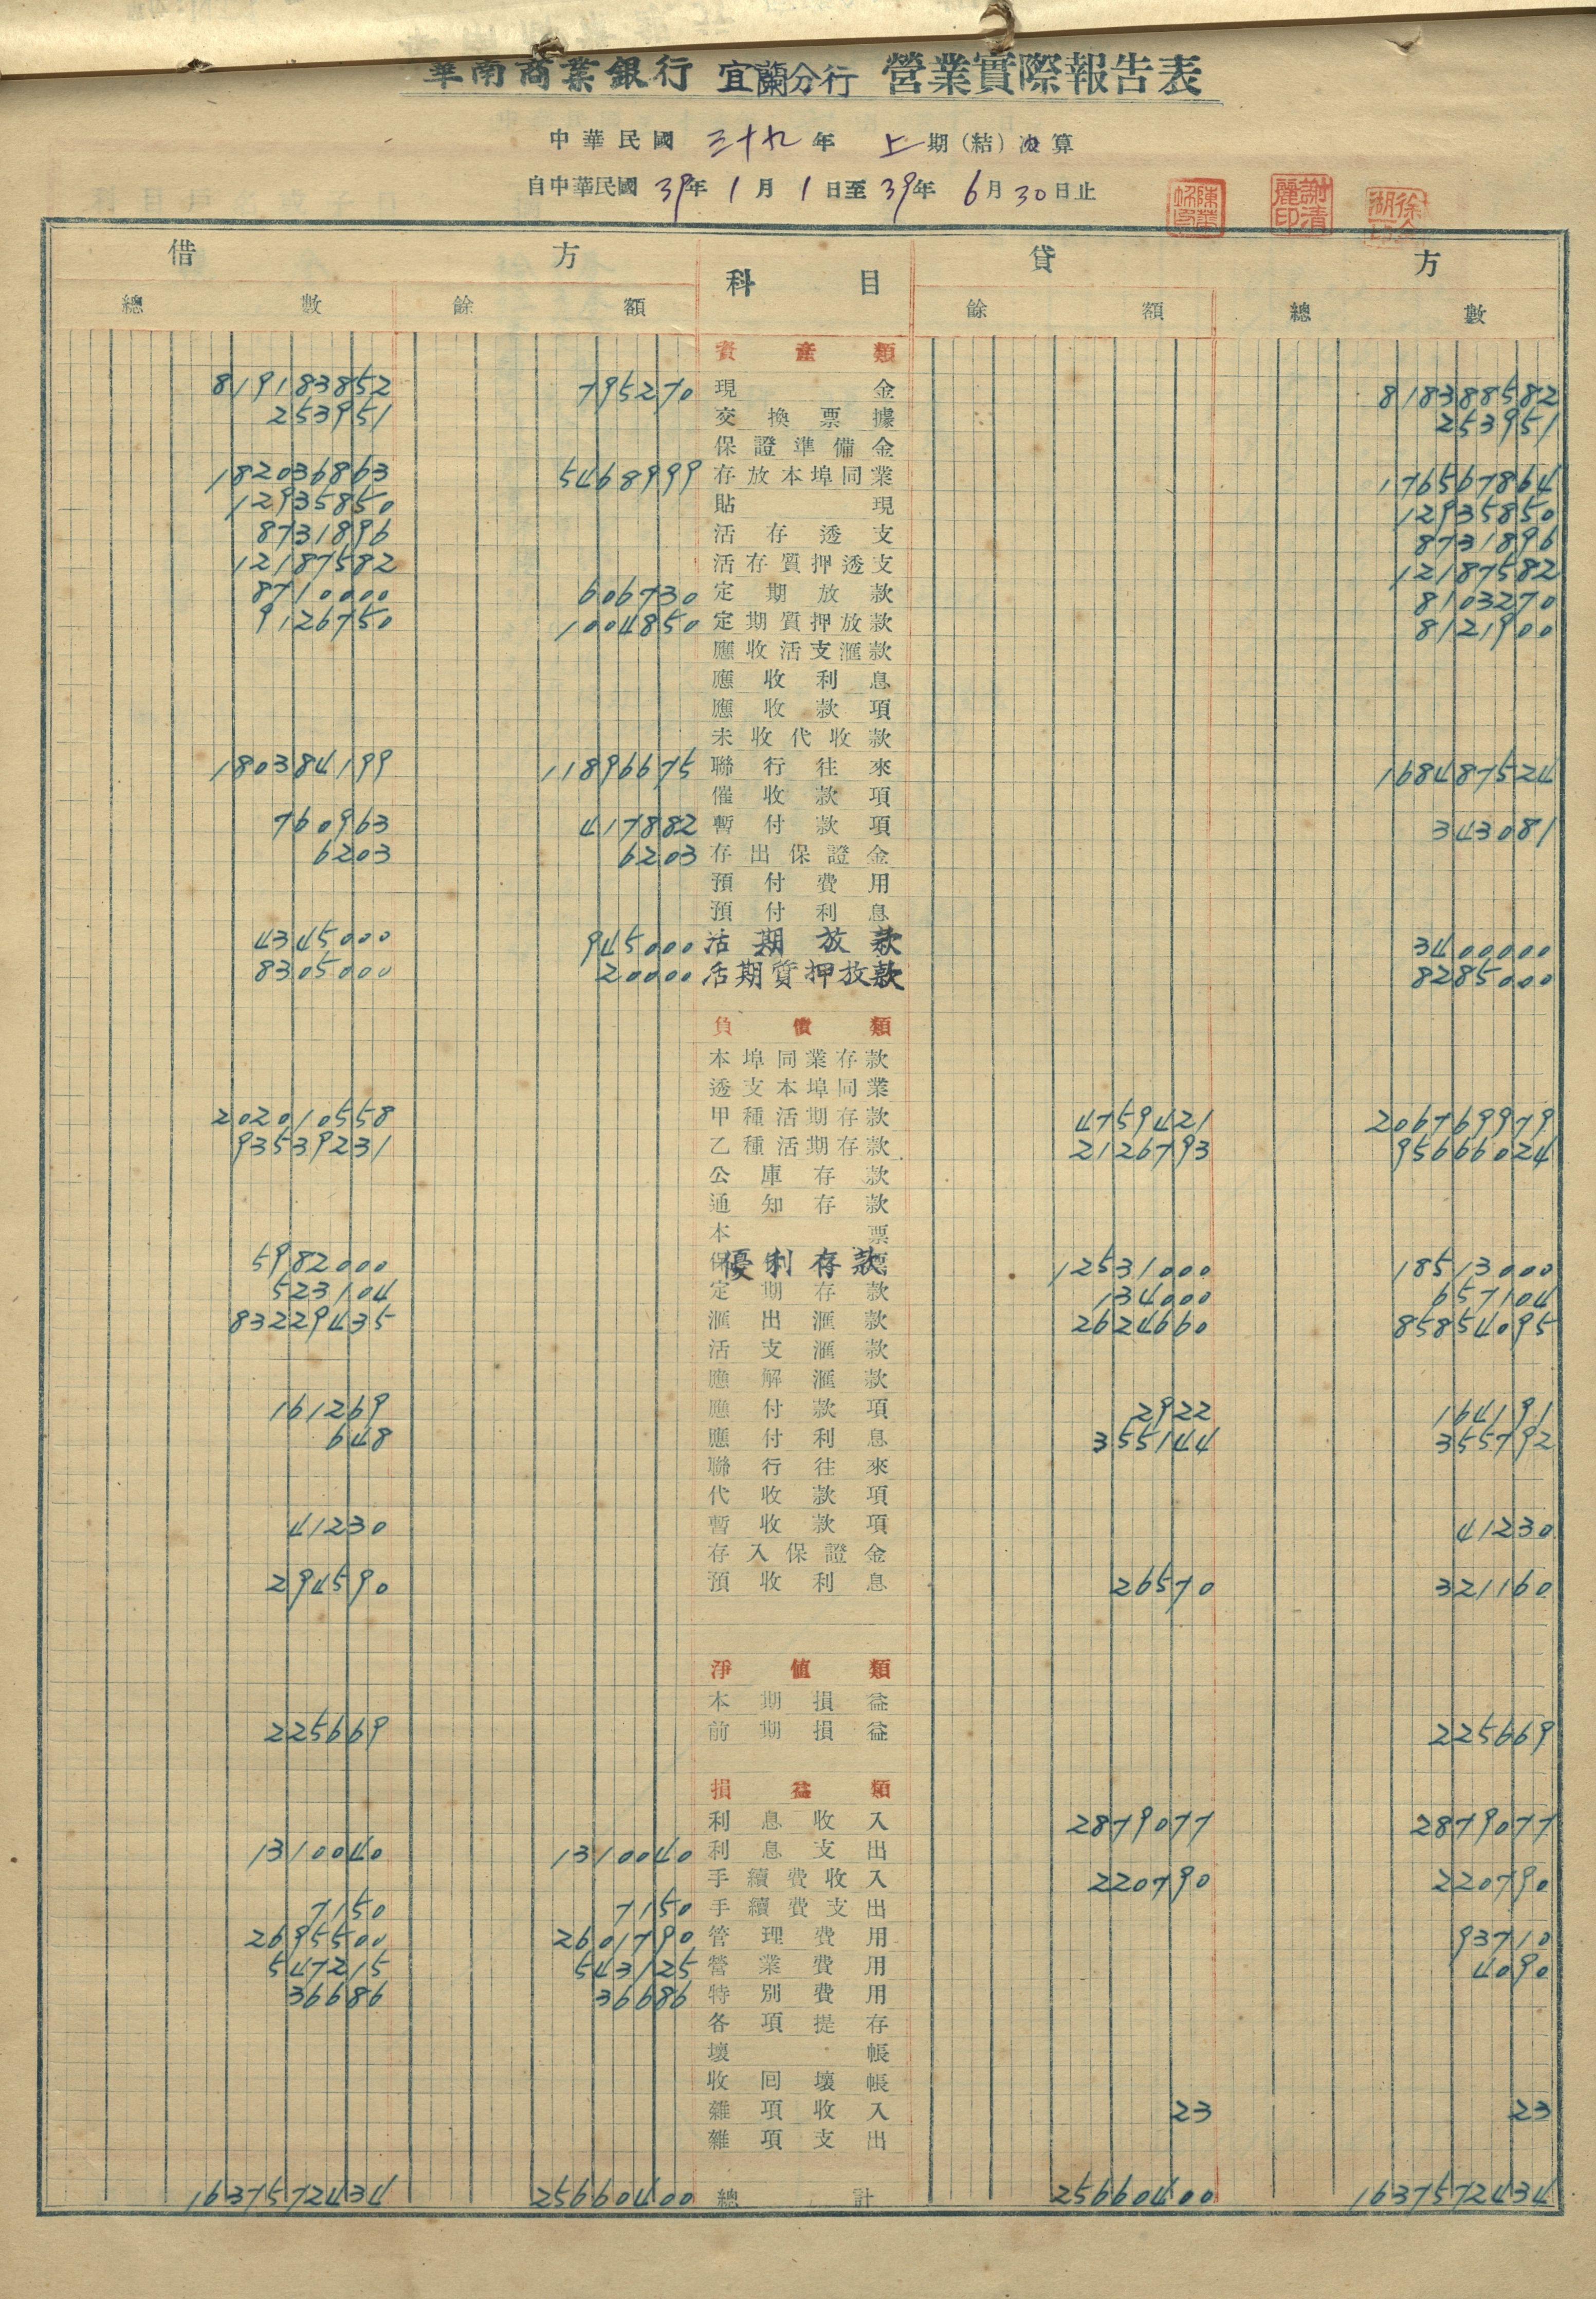 華南商業銀行 宜蘭分行 營業實際報告表
中華民國 三十九 年 上 期(結)決算
自中華民國 39年 1月 1日至39年 6月30日止
陳 謝清麗印 徐
借方 科目 貸方
總數 餘額 餘額 總數
資產類
819183852 795270 現金 818388582
253951 交換票據 253951
保證準備金
182036863 5468999 存放本埠同業 176567864
12935850 貼現 12935850
8731896 活存透支 8731896
12187582 活存質押透支 12187582
8710000 606730 定期放款 8103270
9126750 1004850 定期質押放款 8121900
應收活支滙款
應收利息
應收款項
未收代收款
180384199 11896675 聯行往來 168487524
催收款項
760963 417882 暫付款項 343081
6203 6203 存出保證金
預付費用
預付利息
4345000 945000 活期放款 3400000
8305000 20000 活期質押放款 8285000
負債類
本埠同業存款
透支本埠同業
202010558 甲種活期存款 4759421 206769979
93539231 乙種活期存款 2126793 95666024
公庫存款
通知存款
本票
5982000 優利存款 12531000 18513000
523104 定期存款 134000 657104
83229435 滙出滙款 2624660 85854095
活支滙款
應解滙款
161269 應付款項 2922 164191
648 應付利息 355144 355792
聯行往來
代收款項
41230 暫收款項 41230
存入保證金
294590 預收利息 26570 321160
淨值類
本期損益
225669 前期損益 225669
損益類
利息收入 2879077 2879077
1310040 1310040 利息支出
手續費收入 220790 220790
7150 7150 手續費支出
2695500 2601790 管理費用 93710
547215 543125 營業費用 4090
36686 36686 特別費用
各項提存
壞帳
收回壞帳
雜項收入 23 23
雜項支出
1637572434 25660400 總計 25660400 1637572434